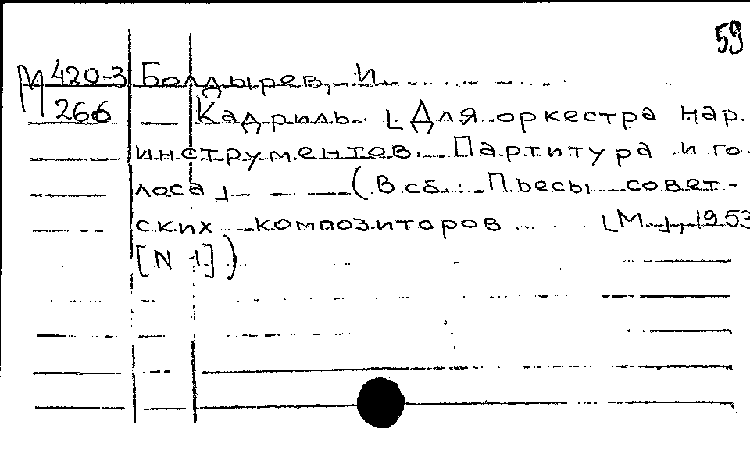 59
М 420-3 Болдырев, И.
266 Кадриль. [Для оркестра нар.
инструментов. Партитура и го-
лоса] (В сб.: Пьесы совет-
ских композиторов [М.], 1953
[N 1])